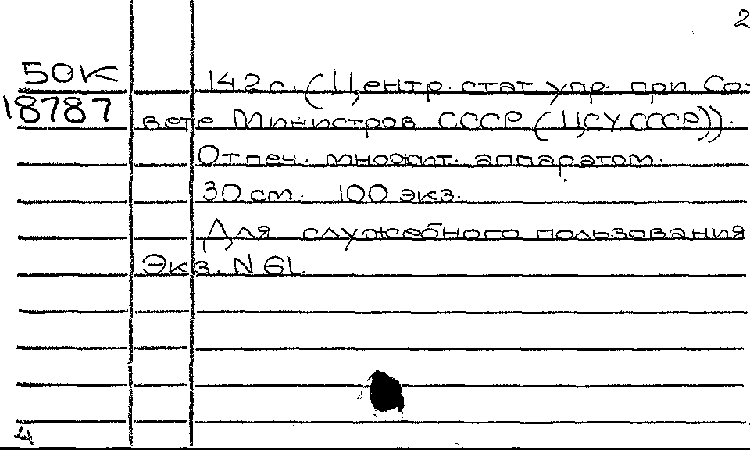 2
50К 142 с. (Центр. стат. упр. при Со-
18787 вете Министров СССР (ЦСУ СССР)).
Отпеч. множит. аппаратом.
30 см. 100 экз.
Для служебного пользования
Экз. N 61.
4